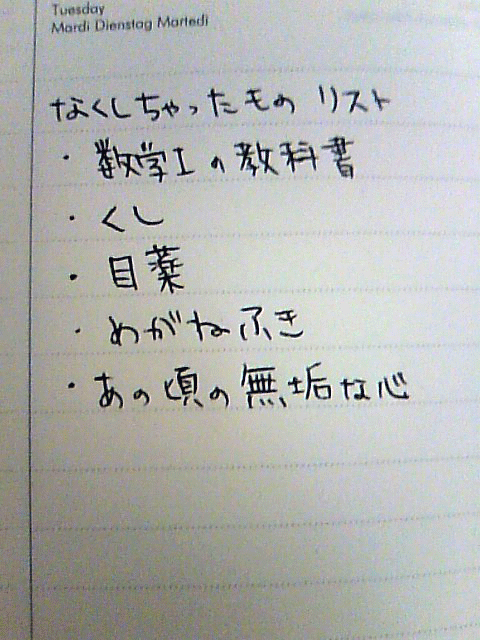 Tuesday
Mardi Dienstag Martedì
なくしちゃったもの リスト
・数学Iの教科書
・くし
・目薬
・めがねふき
・あの頃の無垢な心